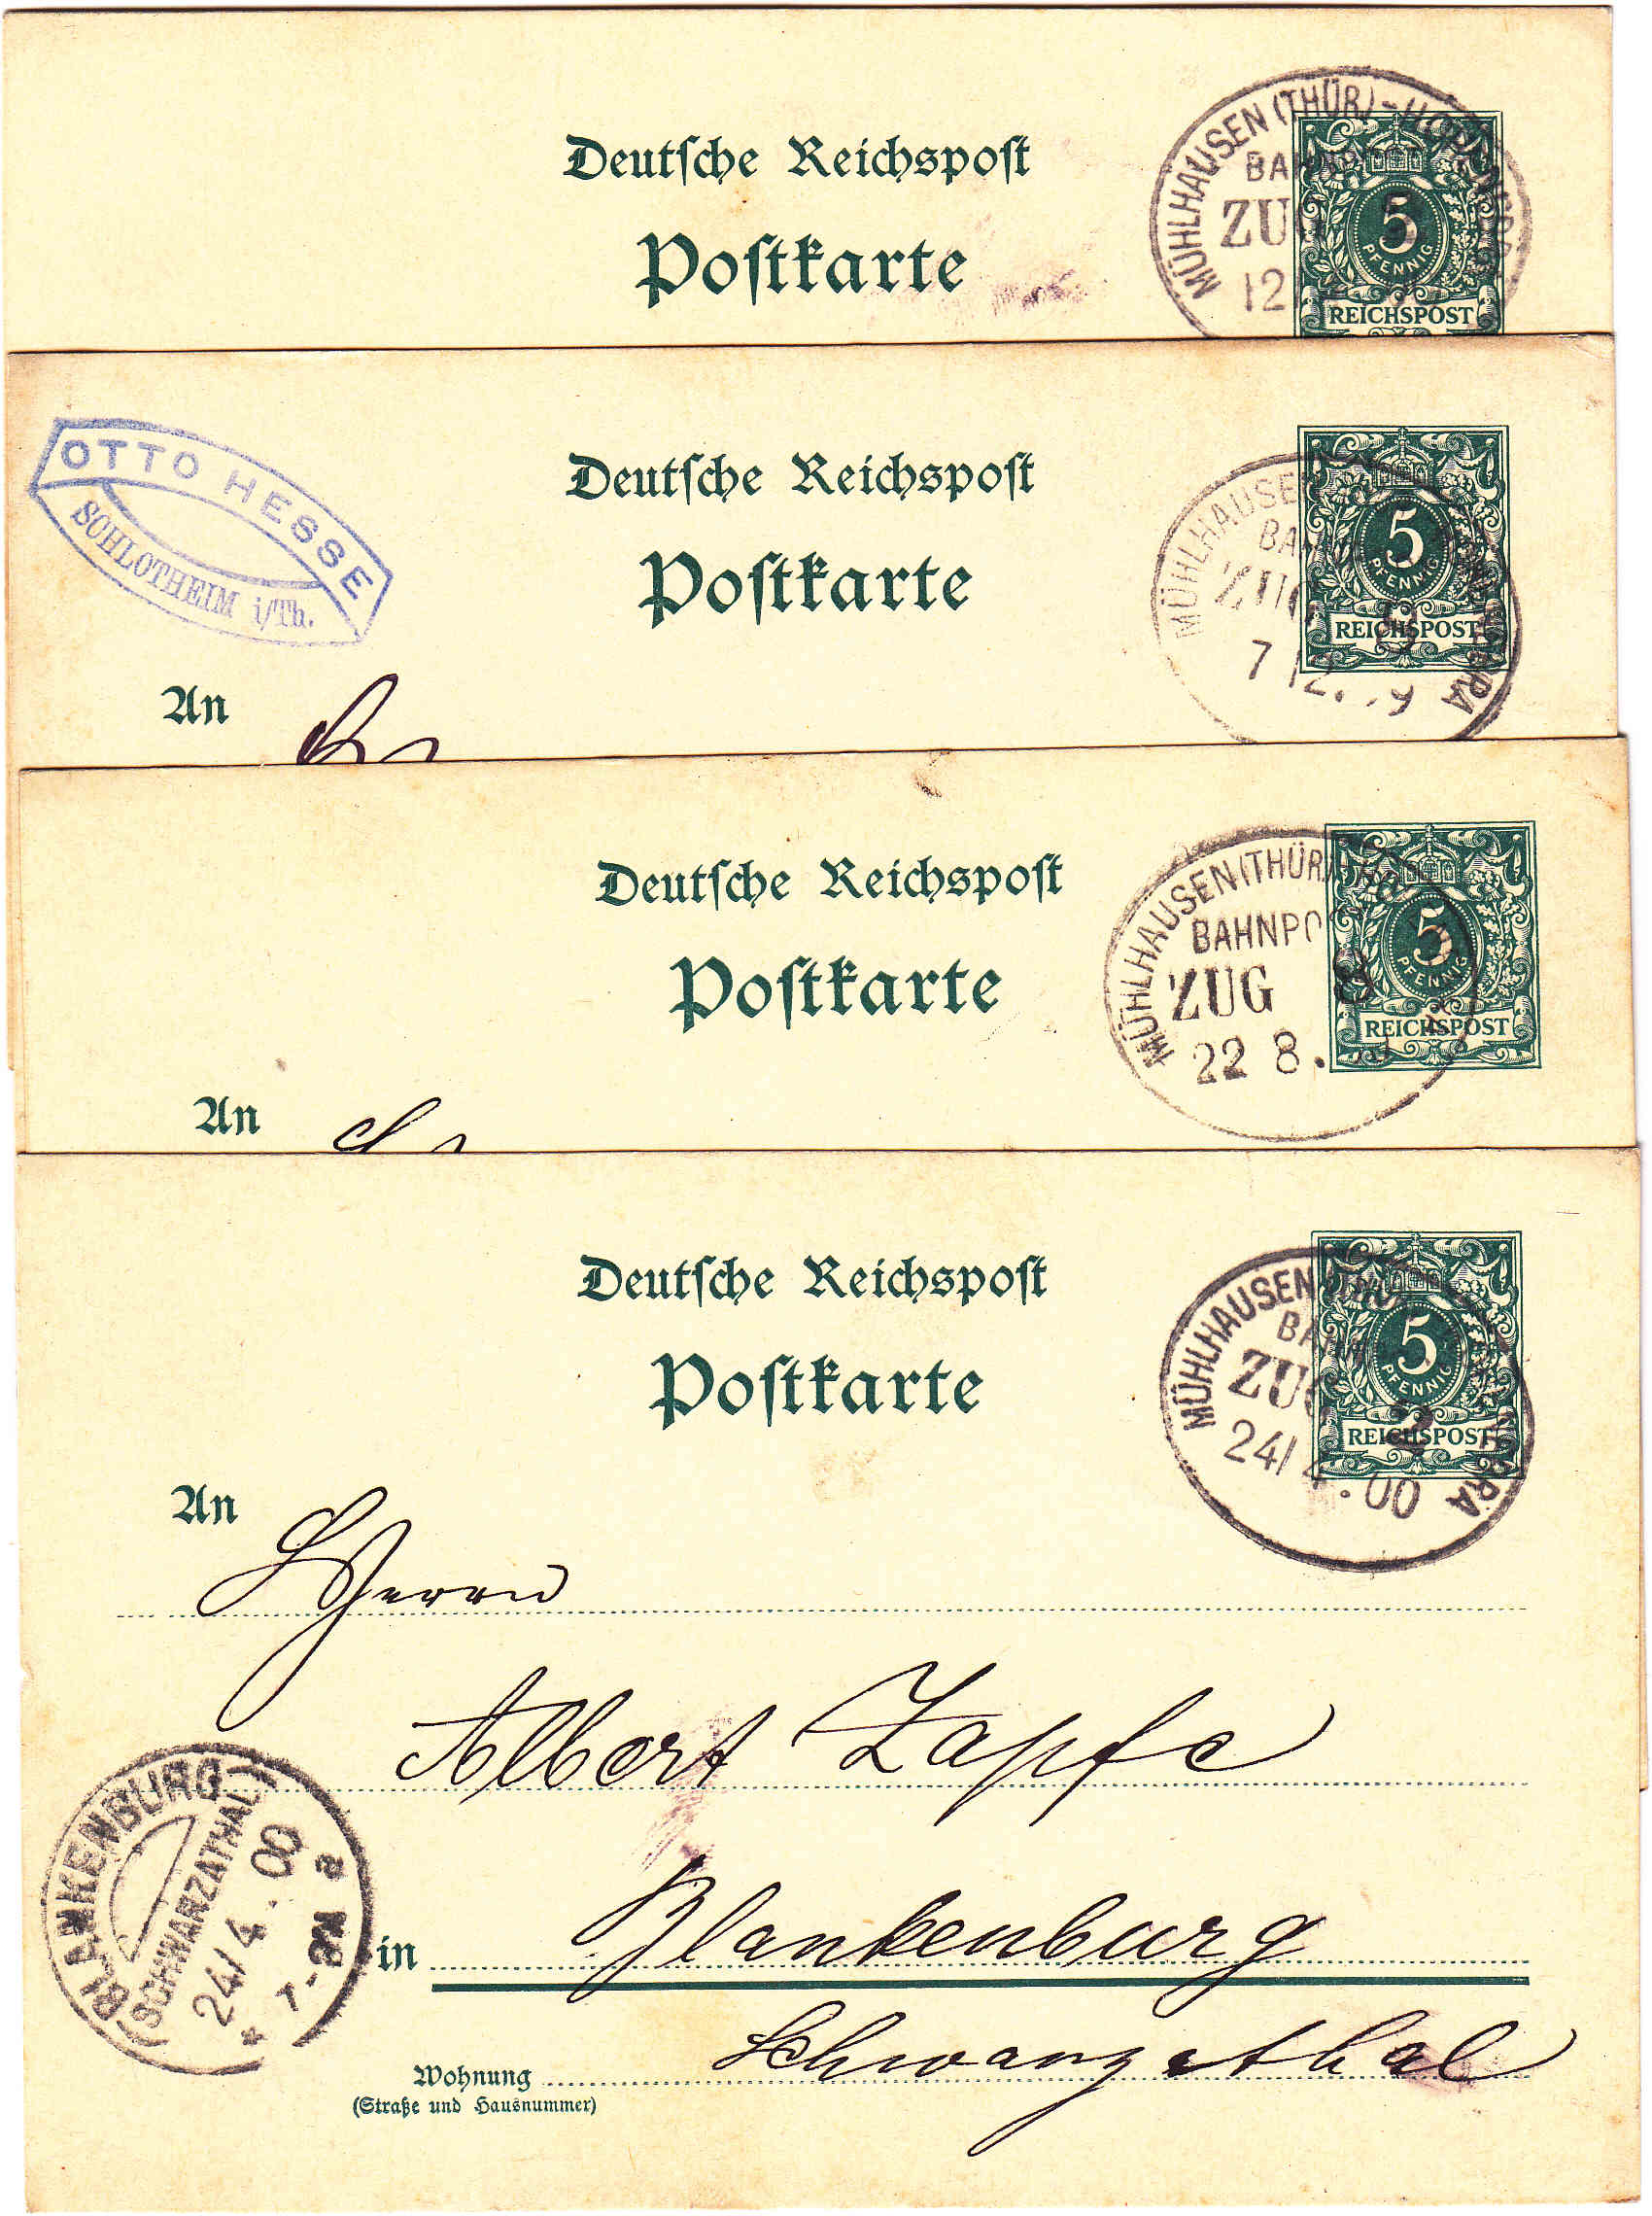 Deutsche Reichspost
Postkarte
MÜHLHAUSEN (THÜR)-
ZUG
12
5
PFENNIG
REICHSPOST
OTTO HESSE
SCHLOTHEIM i/Th.
Deutsche Reichspost
Postkarte
An
MÜHLHAUSEN
ZUG
7 12.
5
PFENNIG
REICHSPOST
Deutsche Reichspost
Postkarte
An
MÜHLHAUSEN (THÜR)
BAHNPO
ZUG 8
22 8.
5
PFENNIG
REICHSPOST
Deutsche Reichspost
Postkarte
MÜHLHAUSEN
ZUG
24/4.00
5
PFENNIG
REICHSPOST
An
Herrn
Albert Zapfe
in Blankenburg
Schwarzathal
Wohnung
(Straße und Hausnummer)
BLANKENBURG
(SCHWARZATHAL)
24/4.00
* 7-8N a